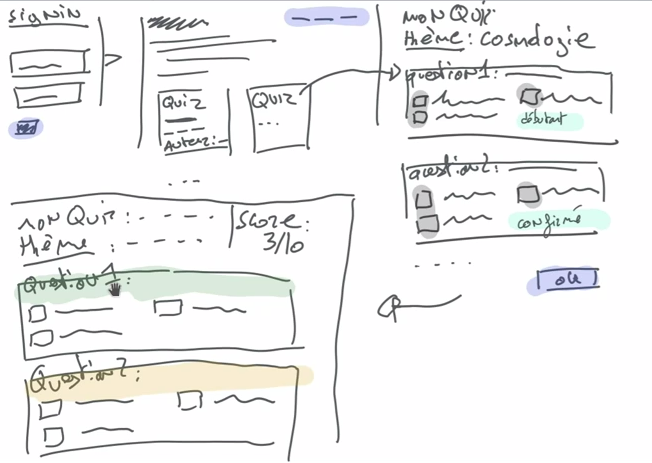 signin
Quiz
Auteur:
Quiz
...
...
mon Quiz
thème: cosmologie
question1:
débutant
question2:
confirmé
ok
mon Quiz:
thème:
Score:
3/10
Question 1:
Question2: